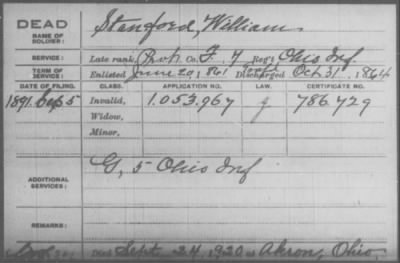 DEAD
NAME OF SOLDIER: Stanford, William
SERVICE: Late rank, Co. F. 7 Reg't Ohio Inf
TERM OF SERVICE: Enlisted June 20, 1861 Discharged Oct 31, 1864
DATE OF FILING. CLASS. APPLICATION NO. LAW. CERTIFICATE NO.
1891. Sep 5 Invalid, 1.053.967 786.729
Widow,
Minor,
ADDITIONAL SERVICES: G, 5 Ohio Inf
REMARKS:
Died Sept 24 1920 at Akron, Ohio